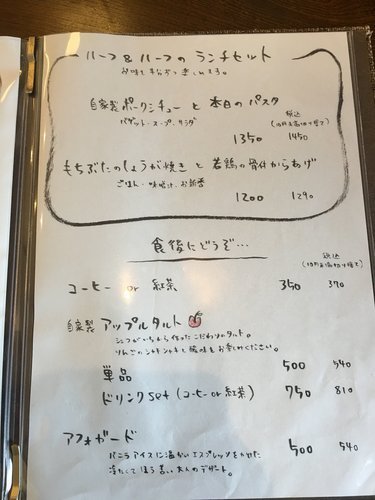 ハーフ&ハーフの ランチセット
自家製ポークシチュー と 本日の パスタ
バゲット・スープ・サラダ
税込
(10円未満切り捨て)
1350 1450
もちぶたのしょうが焼き と 若鶏の骨付からあげ
ごはん・味噌汁・お新香
1200 1290
食後にどうぞ…
税込
(10円未満切り捨て)
コーヒー or 紅茶 350 370
自家製 アップルタルト
シェフがいちから作ったこだわりのタルト。
りんごのシャキシャキと酸味をお楽しみください。
単品 500 540
ドリンクset (コーヒー or 紅茶) 750 810
アフォガード 500 540
バニラアイスに温かいエスプレッソをかけた
冷たくてほろ苦い大人のデザート。